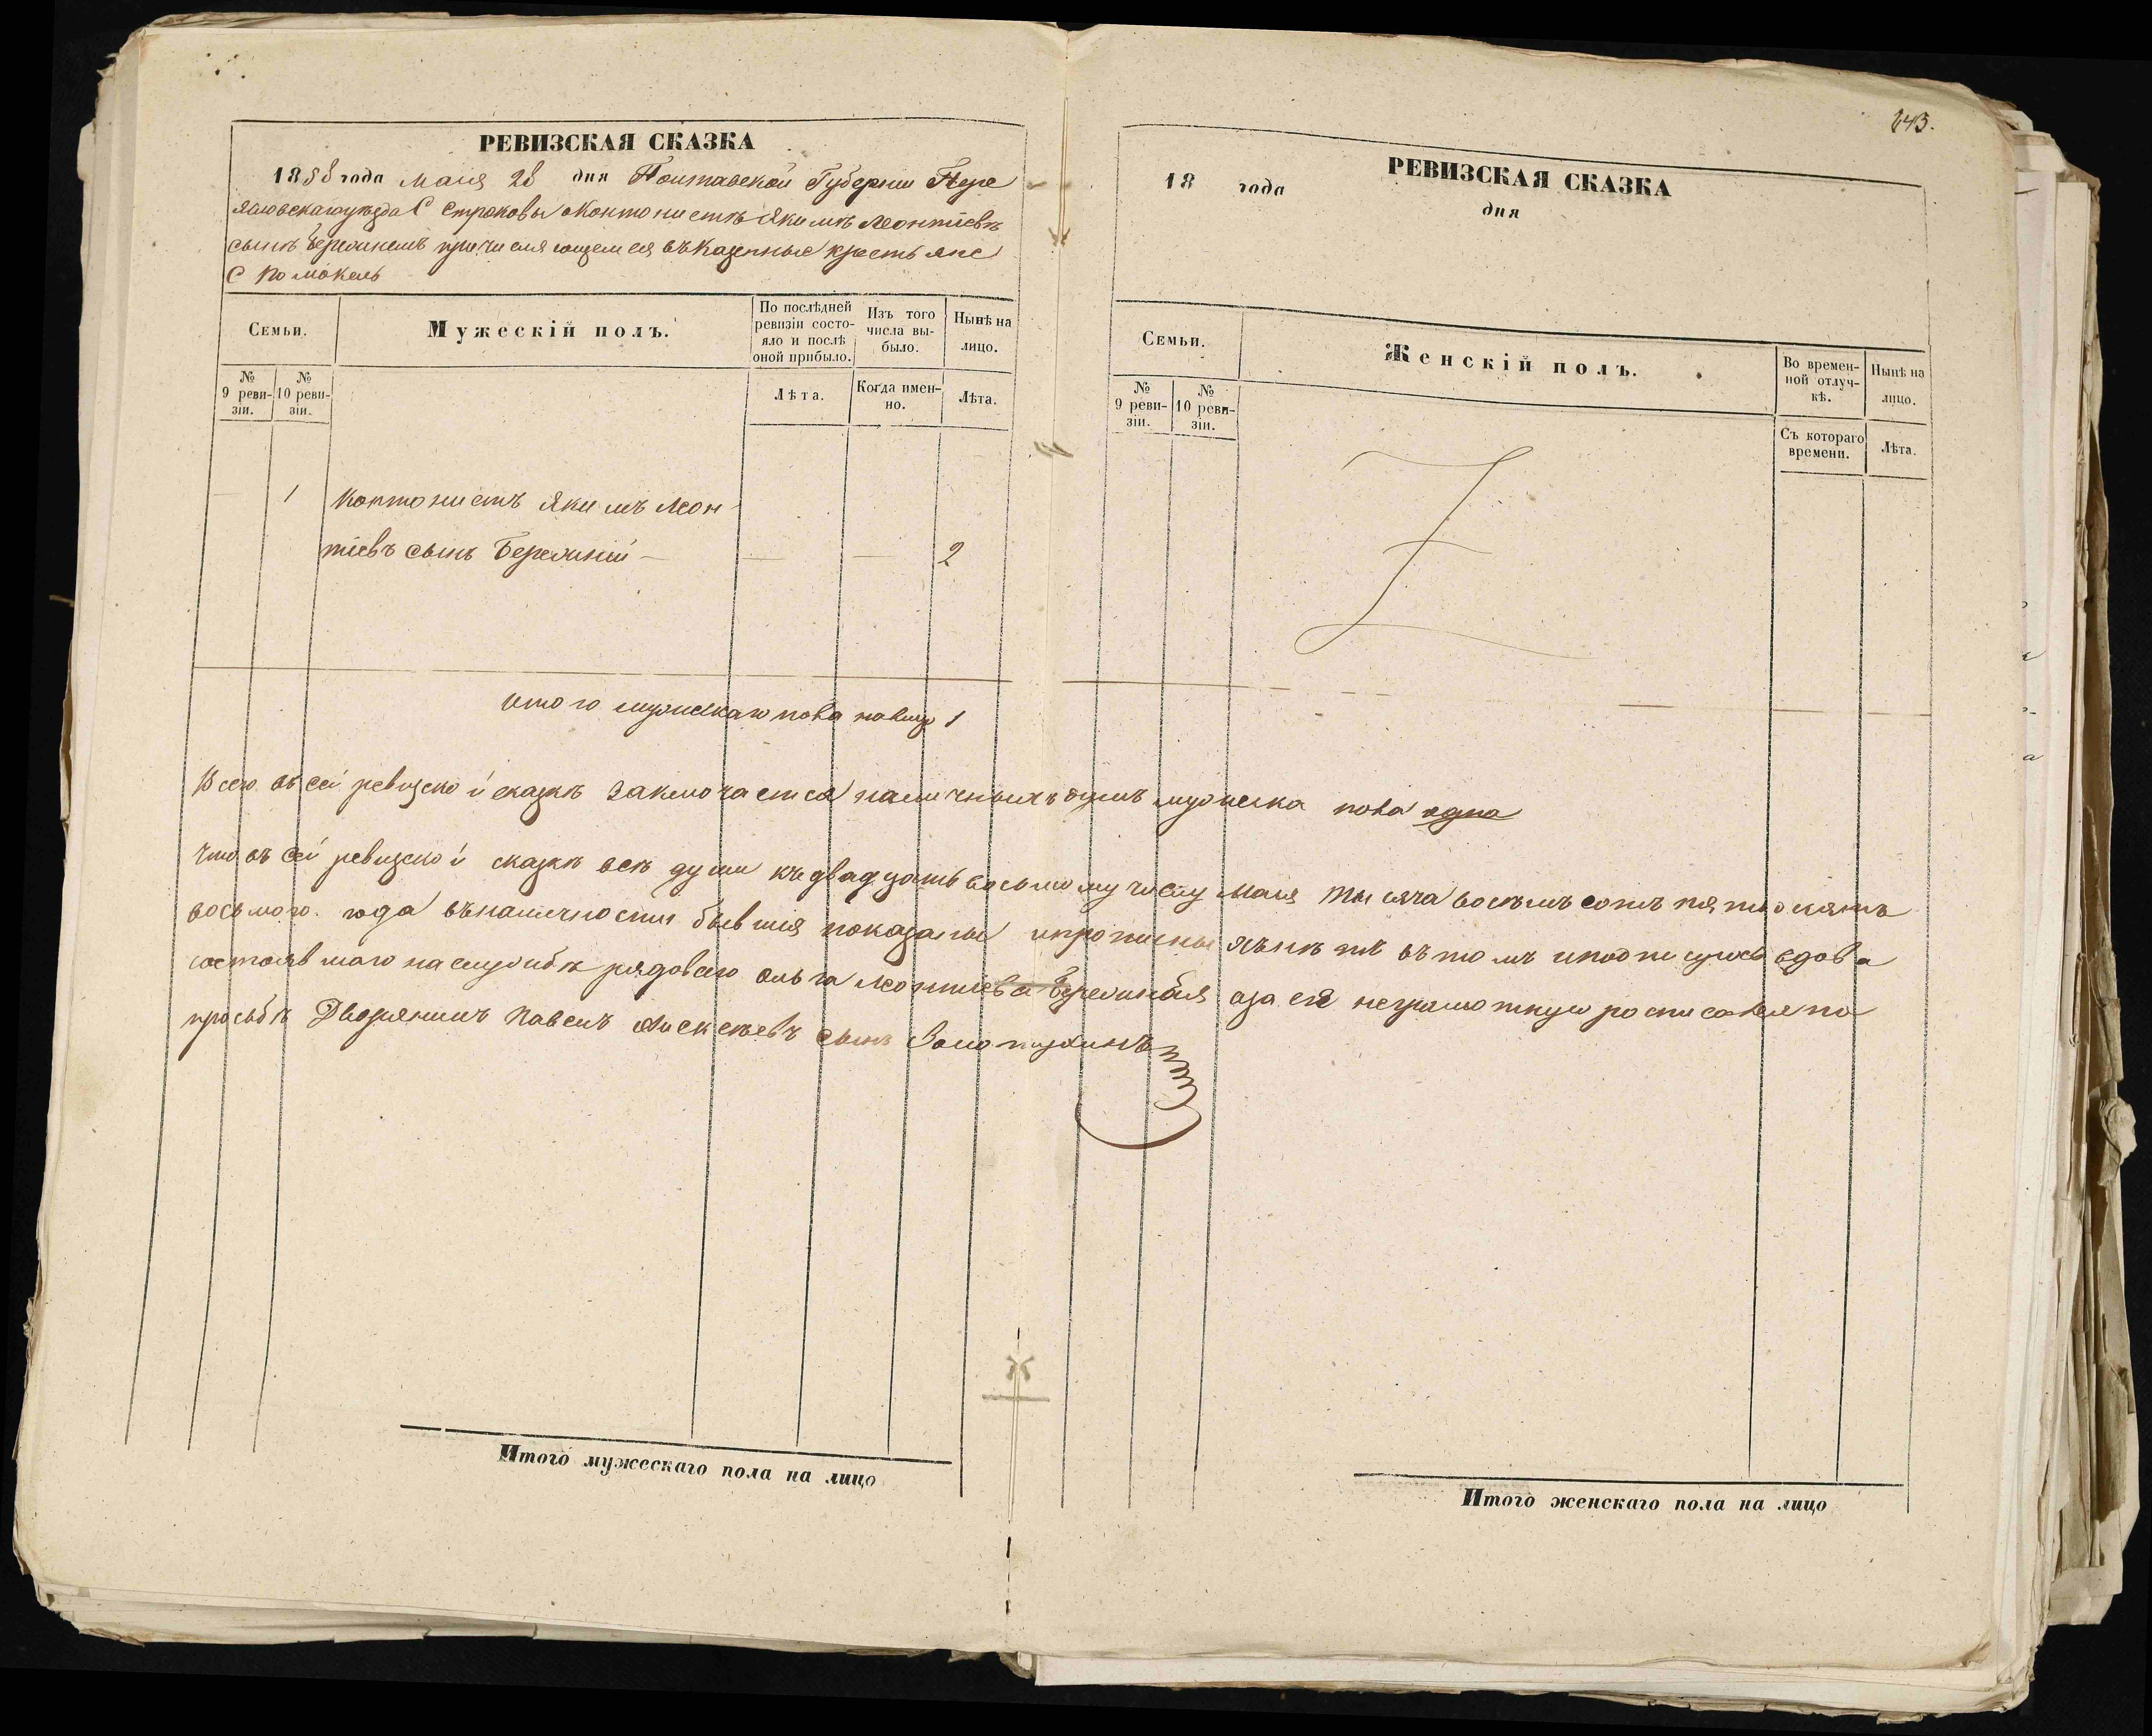 643.
РЕВИЗСКАЯ СКАЗКА
1858 года Маия 28 дня Полтавской Губернии Пере
яславскаго уезда С Строковы о Контонистѣ Якимѣ Леонтіевѣ
сынѣ причисляющемся въ Казенные крестьяне
С Помокель
Семьи.
Мужескій полъ.
По послѣдней ревизіи состояло и послѣ оной прибыло.
Изъ того числа выбыло.
Нынѣ на лицо.
№ 9 ревизіи.
№ 10 ревизіи.
Лѣта.
Когда именно.
Лѣта.
1 Контонистъ Якимъ Леон
тіевъ сынъ — — — 2
Итого мужескаго пола на лицо 1
РЕВИЗСКАЯ СКАЗКА
18 года дня
Семьи.
Женскій полъ.
Во временной отлучкѣ.
Нынѣ на лицо.
№ 9 ревизіи.
№ 10 ревизіи.
Съ котораго времени.
Лѣта.
Всего въ сей ревизской сказкѣ заключается наличныхъ душъ мужеска пола одна
Что въ сей ревизской сказкѣ всѣ души къ двадцать восьмому числу Маия тысяча восемъ сотъ пятдесятъ
восьмого года въ наличности бывшия показаны и прописныхъ нѣтъ въ томъ и подписуюсь вдова
состоявшаго на службѣ рядового Ольга Леонтиева а за её неграмотную росписался по
просьбѣ Дворянинъ Павелъ Алексѣевъ сынъ Золотухинъ
Итого мужескаго пола на лицо
Итого женскаго пола на лицо